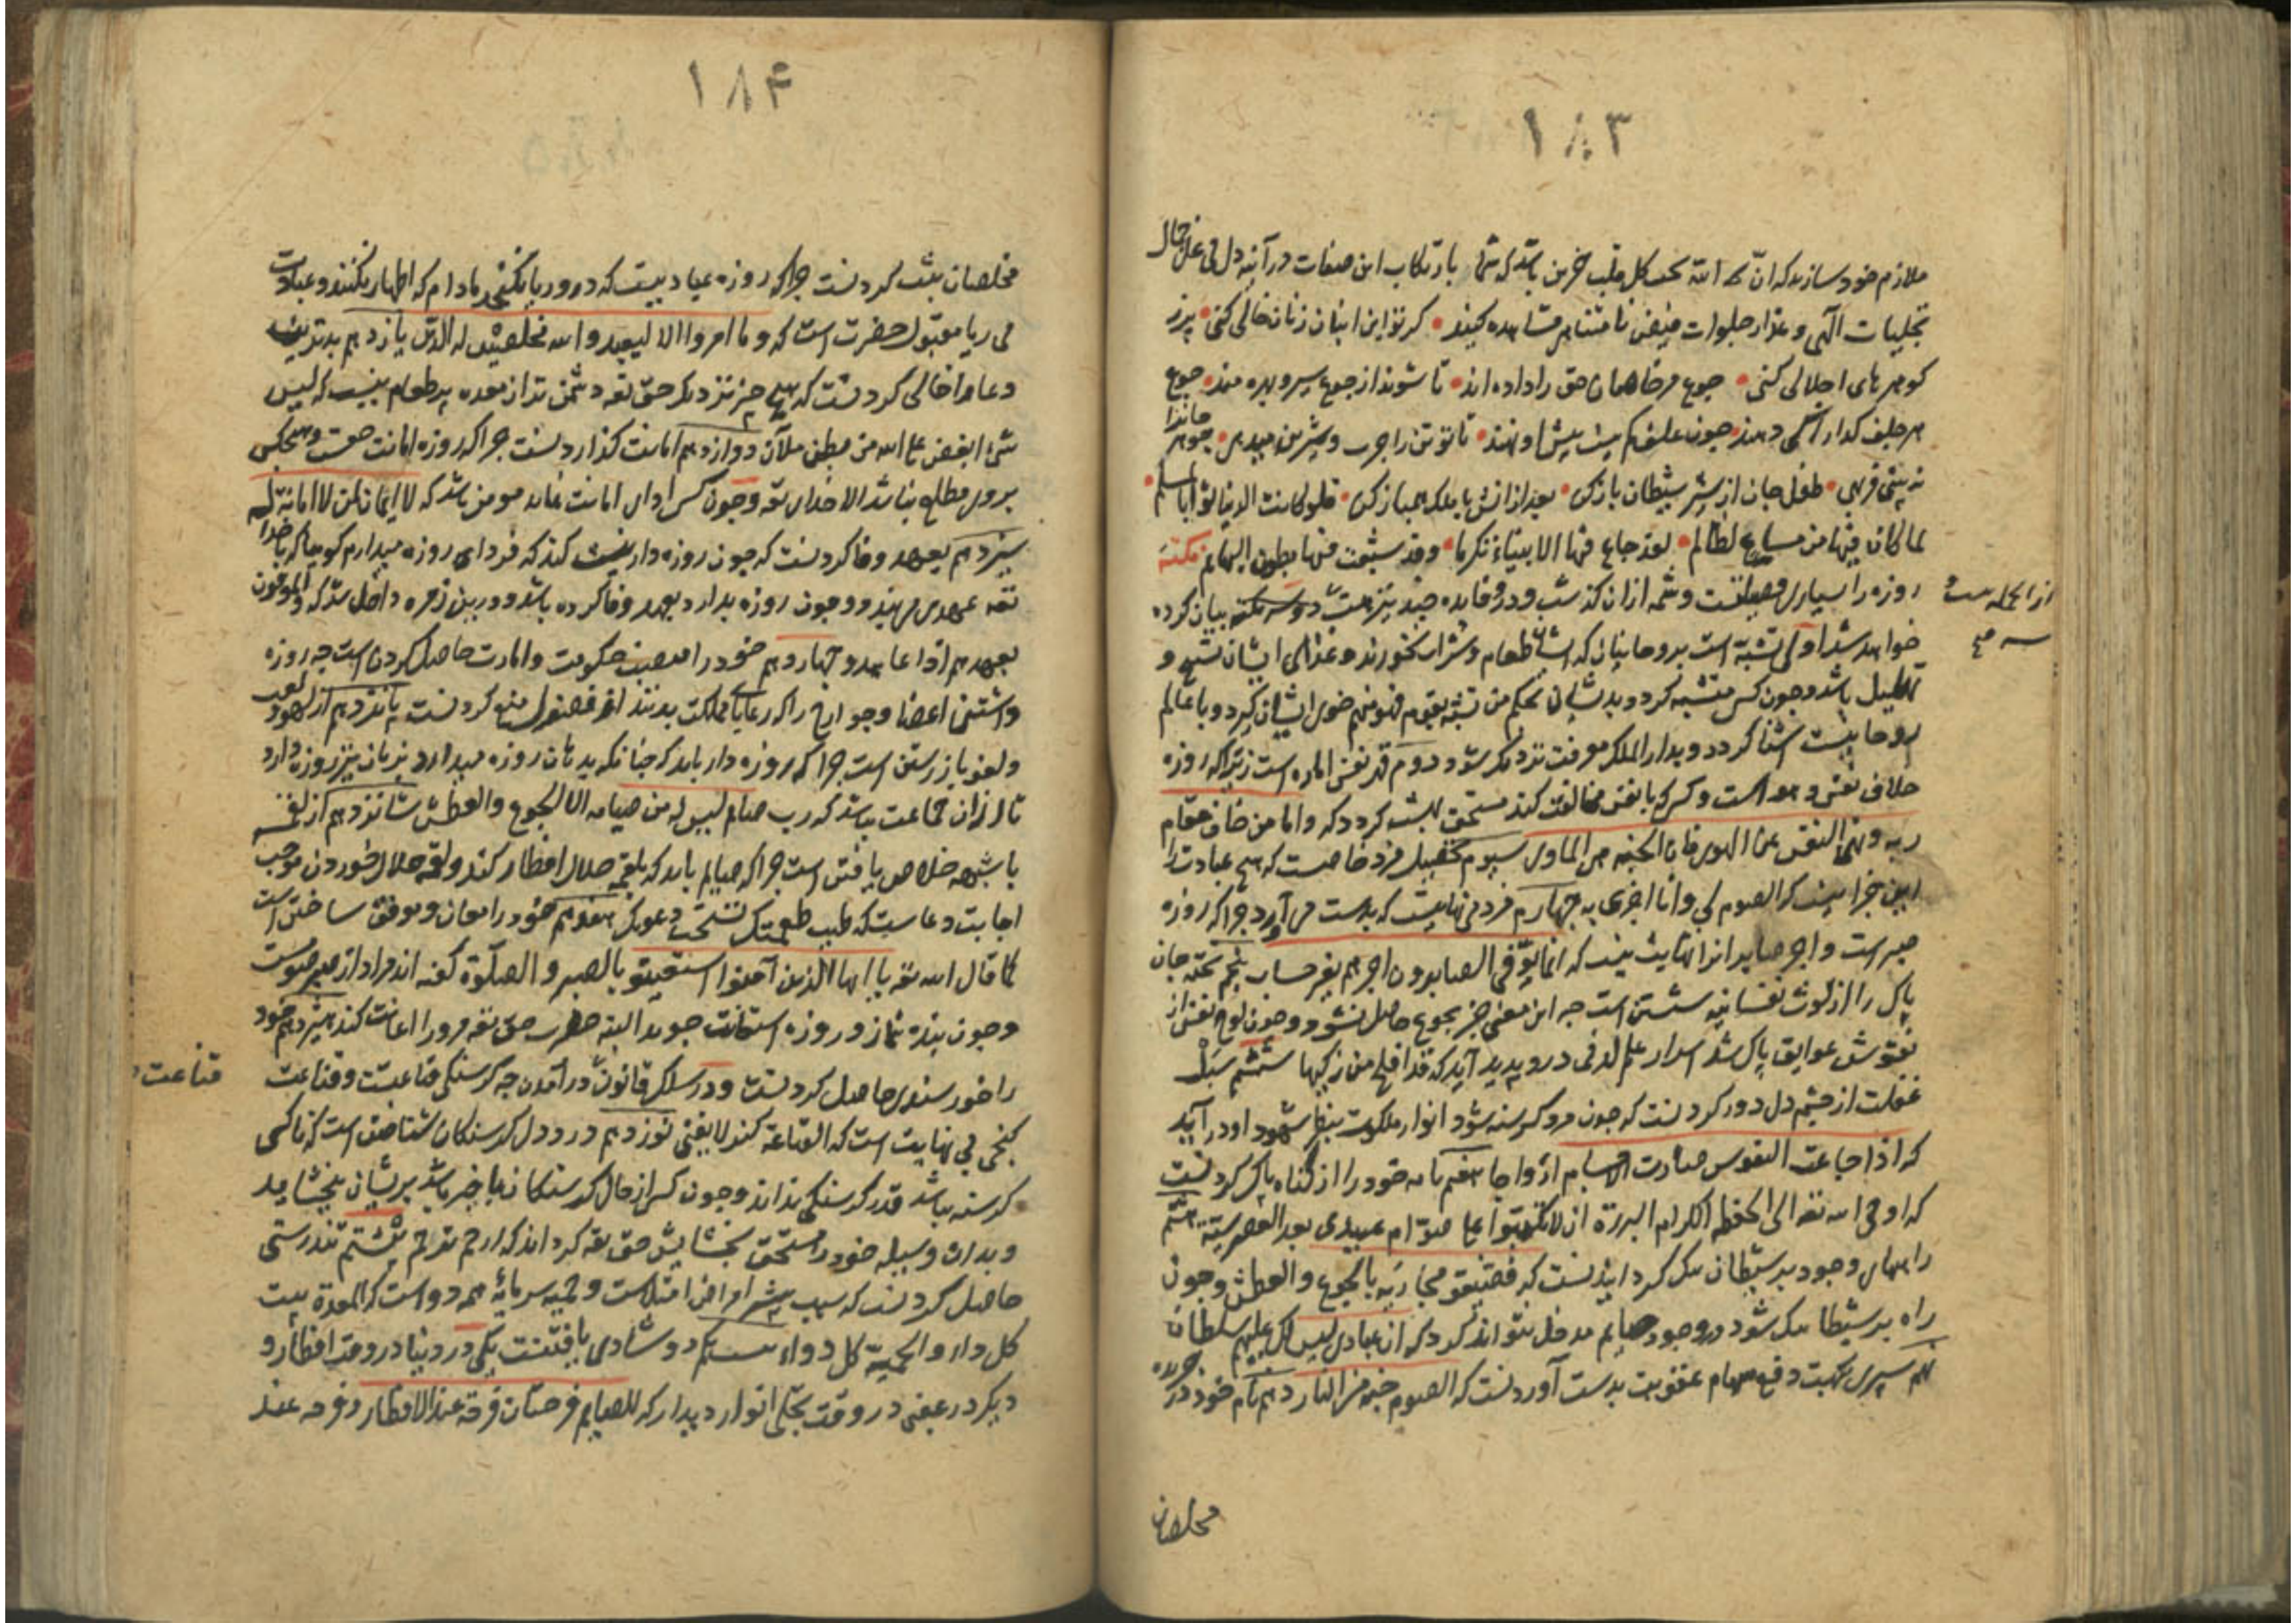 ۱۸۳
ملازم خود سازید که انّ الله یحب کل قلب حزین باشد که شما بارتکاب این صفات در آینه دل بی غل جمال
تجلیات الهی و عذار جلوات فیض نامتناهی مشاهده کنید کر تو این انبان ز نان خالی کنی پر ز
کوهرهای اجلالی کنی جوع مر خاصان حق را داده اند تا شوند از جوع سیر و بهره مند جوع
هر جلف کدا را کی دهند چون علف کم نیست پیش او نهند تا تو تن را چرب و شیرین میدهی جوهر جانرا
نه بینی فربهی طفل جان از شیر شیطان باز کن بعد از آنش با ملک همباز کن فلو کانت الدنیا ثوابا لمسلم
لما کان فیها من مساغ لظالم لقد جاع فیها الانبیاء تکرما وقد شبعت فیها بطون البهایم نکته
روزه را بسیاری فضیلتست و شمه ازان گذشت و درو فایده چند نیز هست دو سه نکته بیان کرده
از انجمله بیست و
سه صح
خواهد شد اولی تشبّه است بروحانیان که ایشان طعام و شراب نخورند و غذای ایشان تسبیح و
تهلیل باشد و چون کس متشبه کردد بدیشان بحکم من تشبه بقوم فهو منهم خوی ایشان کیرد و با عالم
روحانیت آشنا کردد و بدار الملک معرفت نزدیک شود دوم قهر نفس اماره است زیرا که روزه
خلاف نفس و هواست و کسی که با نفس مخالفت کند مستحق بهشت کردد که واما من خاف مقام
ربه ونهی النفس عن الهوی فان الجنة هی الماوی سیوم تحصیل مزد خاصست که هیچ عبادت را
این جزا نیست که الصوم لی وانا اجزی به چهارم مزد بی نهایت که بدست می آورد چرا که روزه
صبرست و اجر صابرانرا نهایت نیست که انما یوفّی الصابرون اجرهم بغیر حساب پنجم تخته جان
پاک را از لوث نفسانیه شستن است چه این معنی جز بجوع حاصل نشود و چون لوح نفس از
نقوش عوایق پاک شد اسرار علم لدنی درو پدید آید که قد افلح من زکیها ششم سبل
غفلت از چشم دل دور کردنست که چون مرد کرسنه شود انوار ملکوت بنظر شهود او در آید
که اذا جاعت النفوس صارت الاجسام ارواحا هفتم نامه خود را از گناه پاک کردنست
که اوحی الله تعالی الی الحفظة الکرام البررة ان لا تکتبوا علی صوّام عبیدی بعد العصر سیئة هشتم
راههای وجود بر شیطان تنک کردانیدنست که فضیقوا مجاریه بالجوع والعطش و چون
راه بر شیطان تنک شود در وجود صایم مدخل نتواند کرد که ان عبادی لیس لک علیهم سلطان
نهم سپری بجهت دفع سهام عقوبت بدست آوردنست که الصوم جنة من النار دهم نام خود در جریده
مخلصان
۱۸۴
مخلصان ثبت کردنست چرا که روزه عبادتیست که درو ریا نکنجد مادام که اظهار نکنند و عبادت
بی ریا مقبول حضرت است که وما امروا الا لیعبدوا الله مخلصین له الدین یازدهم بدترین
وعا را خالی کردنست که هیچ چیز نزدیک حق تعه دشمن تر از معده پر طعام نیست که لیس
شیء ابغض علی الله من بطن ملآن دوازدهم امانت گذاردنست چرا که روزه امانت حقست و هیچکس
بروی مطلع نباشد الا خدای تعه و چون کس ادای امانت نماید مومن باشد که لا ایمان لمن لا امانة له
سیزدهم بعهد وفا کردنست که چون روزه دار نیت کند که فردای روزه میدارم کوییا که با خدا
تعه عهدی می بندد و چون روزه بدارد بعهد وفا کرده باشد و درین زمره داخل شد که والموفون
بعهدهم اذا عاهدوا چهاردهم خود را منصب حکومت و امارت حاصل کردن است چه روزه
داشتن اعضا و جوارح را که رعایای مملکت بدنند از فضول منع کردنست پانزدهم از لهو و لعب
و لغو باز رستن است چرا که روزه دار باید که چنانکه بدهان روزه میدارد بزبان نیز روزه دارد
تا از آن جماعت نباشد که رب صایم لیس له من صیامه الا الجوع والعطش شانزدهم از لقمه
با شبهه خلاص یافتن است چرا که صایم باید که بلقمه حلال افطار کند و لقمه حلال خوردن موجب
اجابت دعاست که طیب طعمتک تستجب دعوتک هفدهم خود را معان و موفق ساختن است
کما قال الله تعه یا ایها الذین آمنوا استعینوا بالصبر والصلوة گفته اند مراد از صبر صومست
و چون بنده بنماز و روزه استعانت جوید البته حضرت حق تعه مرورا اعانت کند هیژدهم خود
را خورسندی حاصل کردنست و در سلک قانون در آمدن چه کرسنکی قناعتست و قناعت
قناعت
کنجی بی نهایت است که القناعة کنز لا یفنی نوزدهم درد دل کرسنکان شناختن است که تا کسی
کرسنه نباشد قدر کرسنکی نداند و چون کس از حال کرسنکان با خبر باشد بریشان بخشاید
و بدان وسیله خود را مستحق بخشایش حق تعه کرداند که ارحم ترحم بیستم تندرستی
حاصل کردنست که سبب بیشتر امراض امتلاست و حمیه سرمایه همه دواست که المعدة بیت
کل داء والحمیة کل دواء بیست یکم دو شادی یافتنست یکی در دنیا در وقت افطار و
دیکر در عقبی در وقت تجلی انوار دیدار که للصایم فرحتان فرحة عند الافطار و فرحة عند